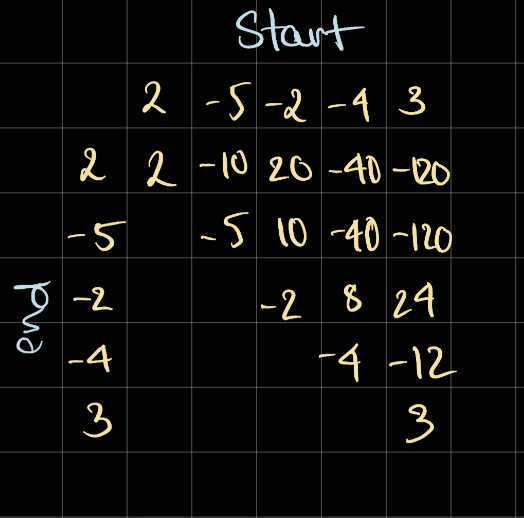 Start
2 -5 -2 -4 3
2 2 -10 20 -40 -120
-5 -5 10 -40 -120
-2 -2 8 24
-4 -4 -12
3 3
end